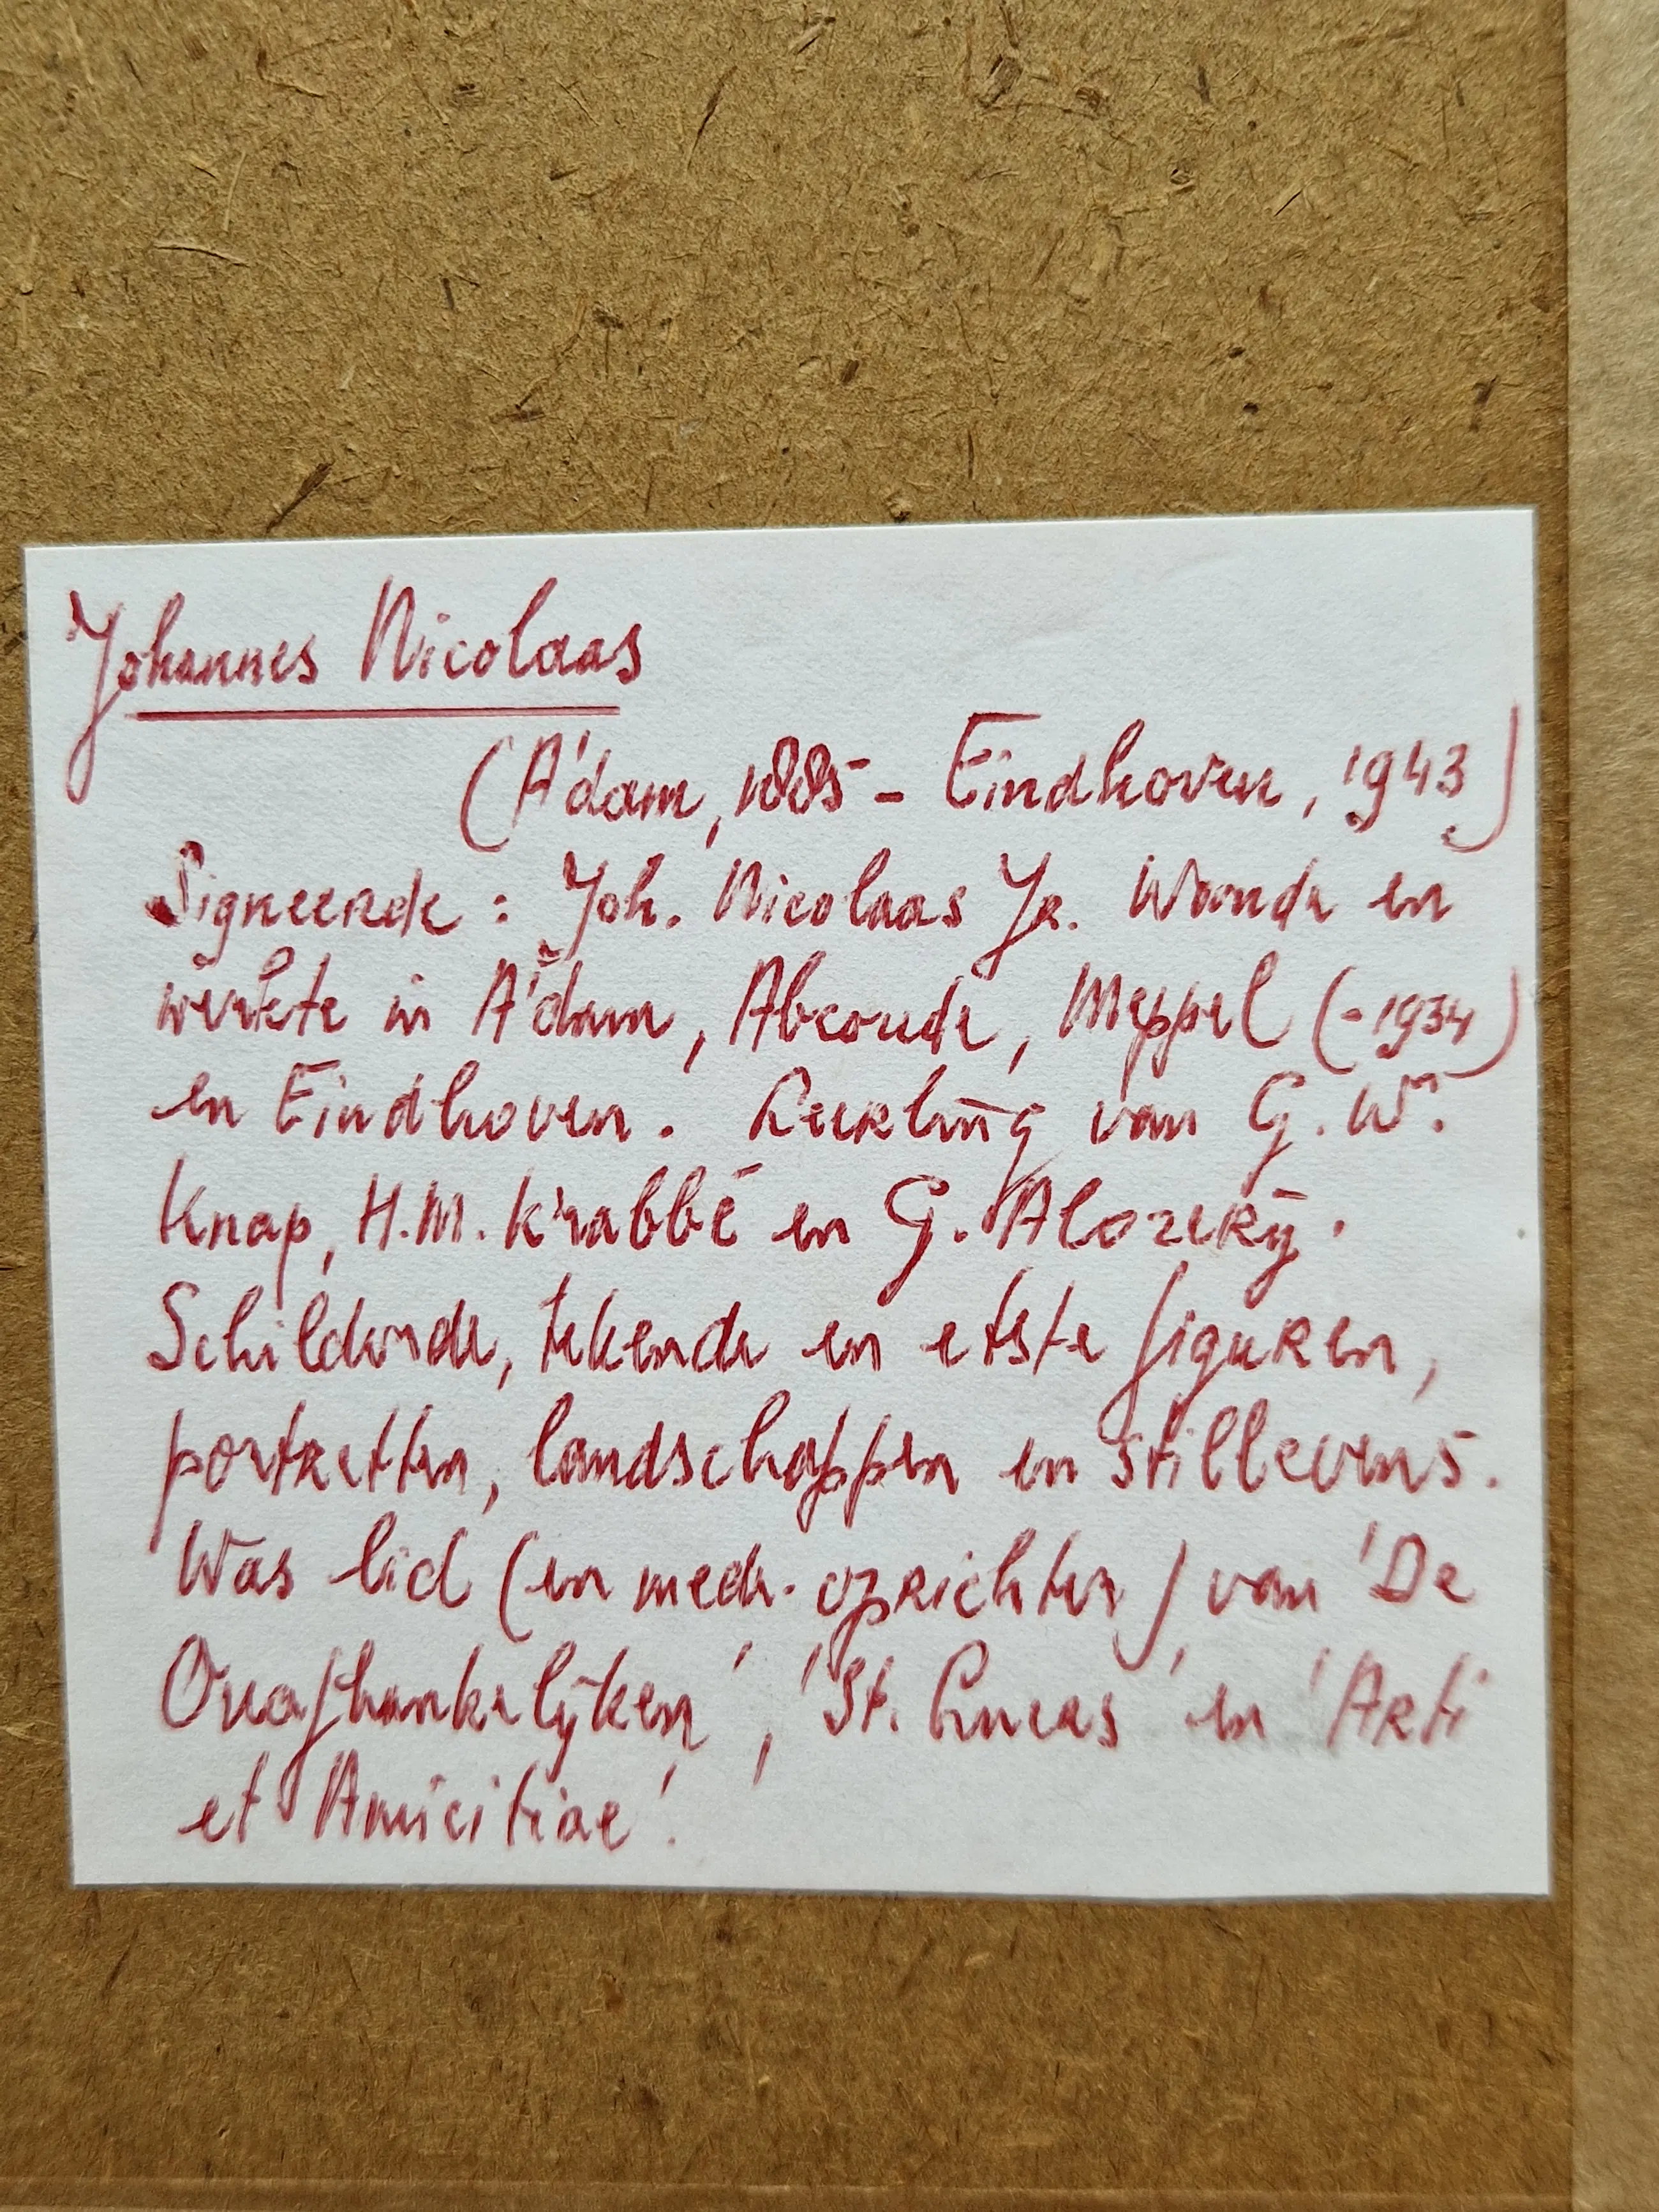 Johannes Nicolaas
(A'dam, 1885 - Eindhoven, 1943)
Signeerde : Joh. Nicolaas Jr. Woonde en
werkte in A'dam, Abcoude, Meppel (-1934)
en Eindhoven. Leerling van G. W.
Knap, H.M. Krabbé en G. Alozerij.
Schilderde, tekende en etste figuren,
portretten, landschappen en stillevens.
Was lid (en mede-oprichter) van 'De
Onafhankelijken', 'St. Lucas' en 'Arti
et Amicitiae'.